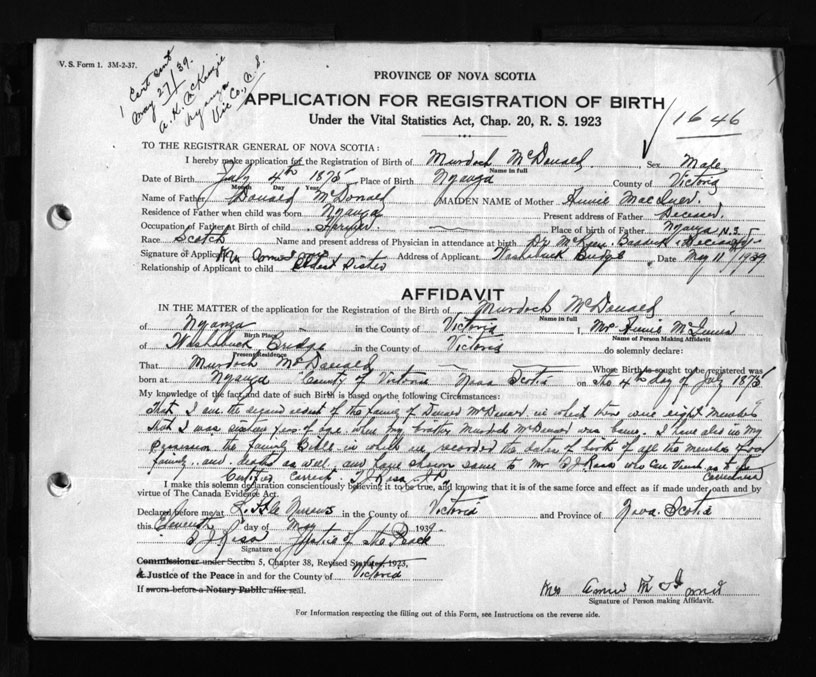 V. S. Form 1. 3M-2-37.
1 Cert sent
May 27/39.
A. K. McKenzie
Nyanza
Vic Co., N S.
PROVINCE OF NOVA SCOTIA
APPLICATION FOR REGISTRATION OF BIRTH
Under the Vital Statistics Act, Chap. 20, R. S. 1923
1646
TO THE REGISTRAR GENERAL OF NOVA SCOTIA:
I hereby make application for the Registration of Birth of Murdoch McDonald Sex Male
Name in full
Date of Birth July 4th 1875 Place of Birth Nyanza County of Victoria
Month Day Year
Name of Father Donald McDonald MAIDEN NAME of Mother Annie
Residence of Father when child was born Nyanza Present address of Father
Occupation of Father at Birth of child Farmer Place of birth of Father Nyanza N.S.
Race Scotch Name and present address of Physician in attendance at birth Dr Baddeck
Signature of Applicant Address of Applicant Washabuck Bridge Date May 11/1939
Relationship of Applicant to child Eldest Sister
AFFIDAVIT
IN THE MATTER of the application for the Registration of the Birth of Murdoch McDonald
Name in full
of Nyanza in the County of Victoria I, Mrs Annie
Birth Place Name of Person Making Affidavit
of Washabuck Bridge in the County of Victoria do solemnly declare:
Present Residence
That Murdoch McDonald Whose Birth is sought to be registered was
born at Nyanza County of Victoria Nova Scotia on the 4th day of July 1875
My knowledge of the fact and date of such Birth is based on the following Circumstances:
That I am the second eldest of the family of Donald McDonald in which there were eight members
that I was years of age when my brother Murdoch McDonald was born. I have also in my
possession the Family Bible in which is recorded the dates of birth of all the members of our
family and deaths as well and have shown same to Mr Ross who can
Correctness
I make this solemn declaration conscientiously believing it to be true, and knowing that it is of the same force and effect as if made under oath and by
virtue of The Canada Evidence Act.
Declared before me at in the County of Victoria and Province of Nova Scotia
this Eleventh day of May 1939.
Ross Justice of the Peace
Signature of
Commissioner under Section 5, Chapter 38, Revised Statutes 1923,
Justice of the Peace in and for the County of Victoria
If sworn before a Notary Public affix seal.
Mrs Annie
Signature of Person making Affidavit.
For Information respecting the filling out of this Form, see Instructions on the reverse side.